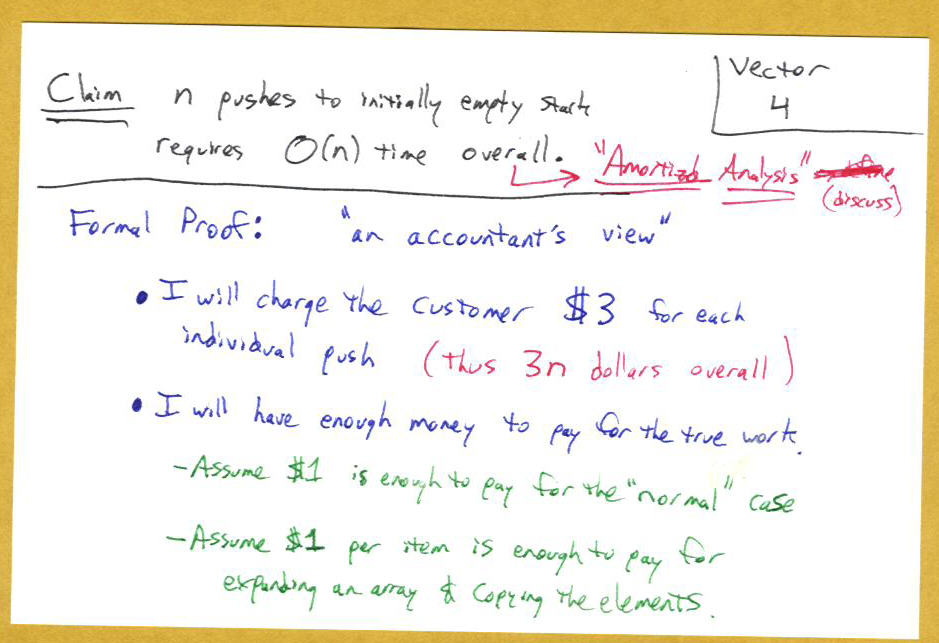 Vector
4
Claim n pushes to initially empty stack
requires O(n) time overall.
"Amortized Analysis"
(discuss)
Formal Proof: "an accountant's view"
• I will charge the customer $3 for each
individual push (thus 3n dollars overall)
• I will have enough money to pay for the true work.
- Assume $1 is enough to pay for the "normal" case
- Assume $1 per item is enough to pay for
expanding an array & copying the elements.